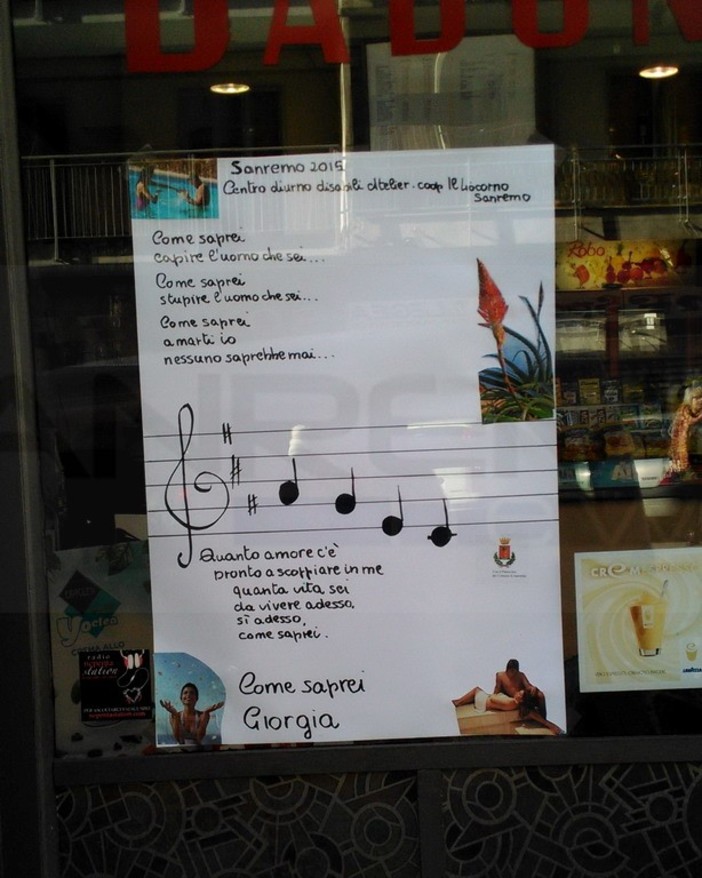 DADON
Sanremo 2015
Centro diurno disabili atelier. coop Il Liocorno
Sanremo
Come saprei
capire l'uomo che sei...
Robo
Come saprei
stupire l'uomo che sei...
Come saprei
amarti io
nessuno saprebbe mai...
Quanto amore c'è
pronto a scoppiare in me
quanta vita sei
da vivere adesso,
sì adesso,
come saprei.
Come saprei
Giorgia
CREMESPRESSO
yoclea
CREMA ALLO
radio
station